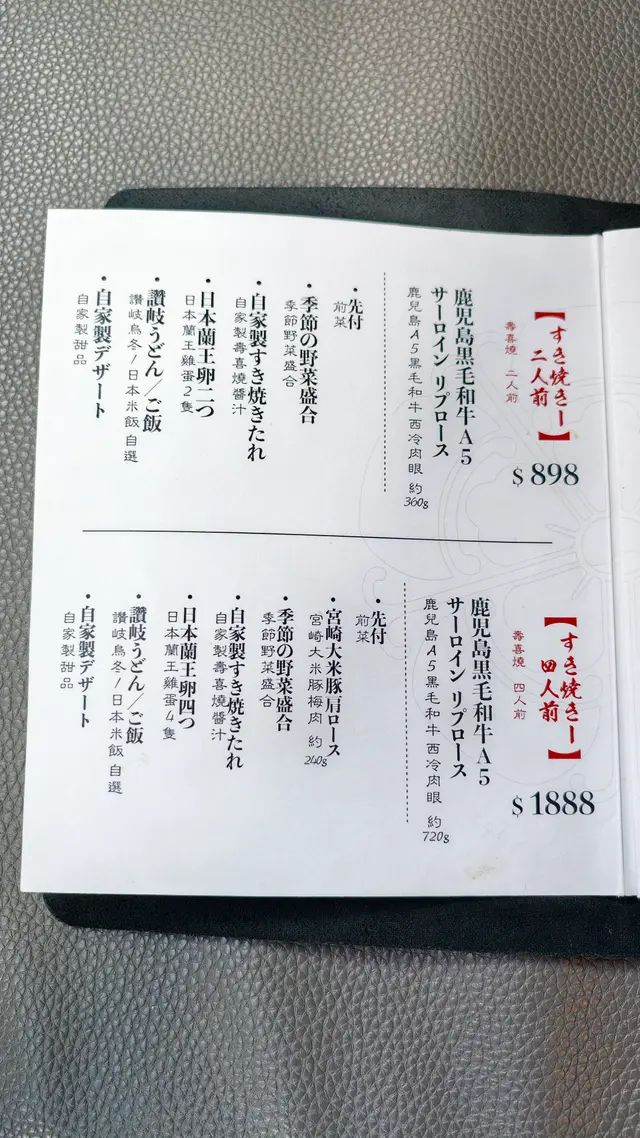 【すき焼き 二人前】
壽喜燒 二人前
$898
鹿児島黒毛和牛A5
サーロイン リブロース
鹿兒島A5黑毛和牛 西冷肉眼 約360g
・先付
前菜
・季節の野菜盛合
季節野菜盛合
・自家製すき焼きたれ
自家製壽喜燒醬汁
・日本蘭王卵二つ
日本蘭王雞蛋2隻
・讃岐うどん/ご飯
讚岐烏冬/日本米飯 自選
・自家製デザート
自家製甜品
【すき焼き 四人前】
壽喜燒 四人前
$1888
鹿児島黒毛和牛A5
サーロイン リブロース
鹿兒島A5黑毛和牛 西冷肉眼 約720g
・先付
前菜
・宮崎大米豚肩ロース
宮崎大米豚梅肉 約240g
・季節の野菜盛合
季節野菜盛合
・自家製すき焼きたれ
自家製壽喜燒醬汁
・日本蘭王卵四つ
日本蘭王雞蛋4隻
・讃岐うどん/ご飯
讚岐烏冬/日本米飯 自選
・自家製デザート
自家製甜品